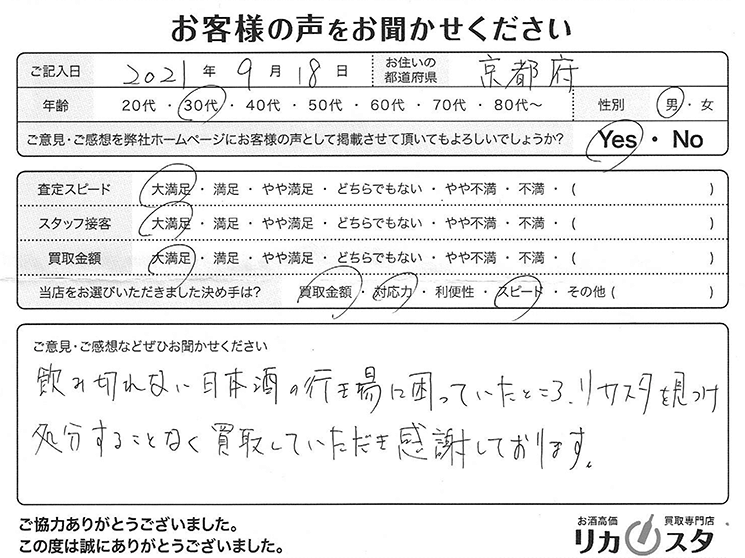 お客様の声をお聞かせください
ご記入日 2021 年 9 月 18 日 お住いの都道府県 京都府
年齢 20代・30代・40代・50代・60代・70代・80代〜 性別 男・女
ご意見・ご感想を弊社ホームページにお客様の声として掲載させて頂いてもよろしいでしょうか? Yes・No
査定スピード 大満足・満足・やや満足・どちらでもない・やや不満・不満・( )
スタッフ接客 大満足・満足・やや満足・どちらでもない・やや不満・不満・( )
買取金額 大満足・満足・やや満足・どちらでもない・やや不満・不満・( )
当店をお選びいただきました決め手は? 買取金額・対応力・利便性・スピード・その他( )
ご意見・ご感想などぜひお聞かせください
飲み切れない日本酒の行き場に困っていたところ、リカスタを見つけ
処分することなく買取していただき感謝しております。
ご協力ありがとうございました。
この度は誠にありがとうございました。
お酒高価 買取専門店
リカスタ